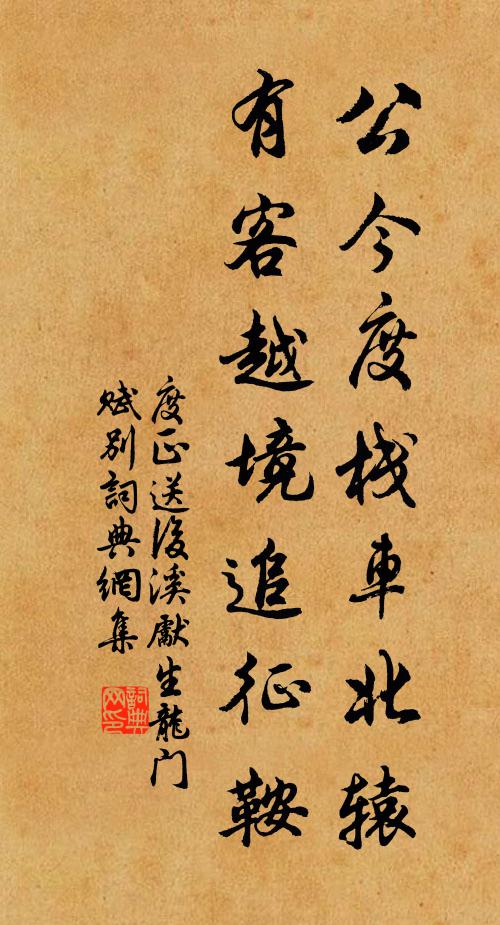 公今度栈車北辕
有客越境追征鞍
度正送後溪獻生龍门
赋别詞典網集
詞典网印